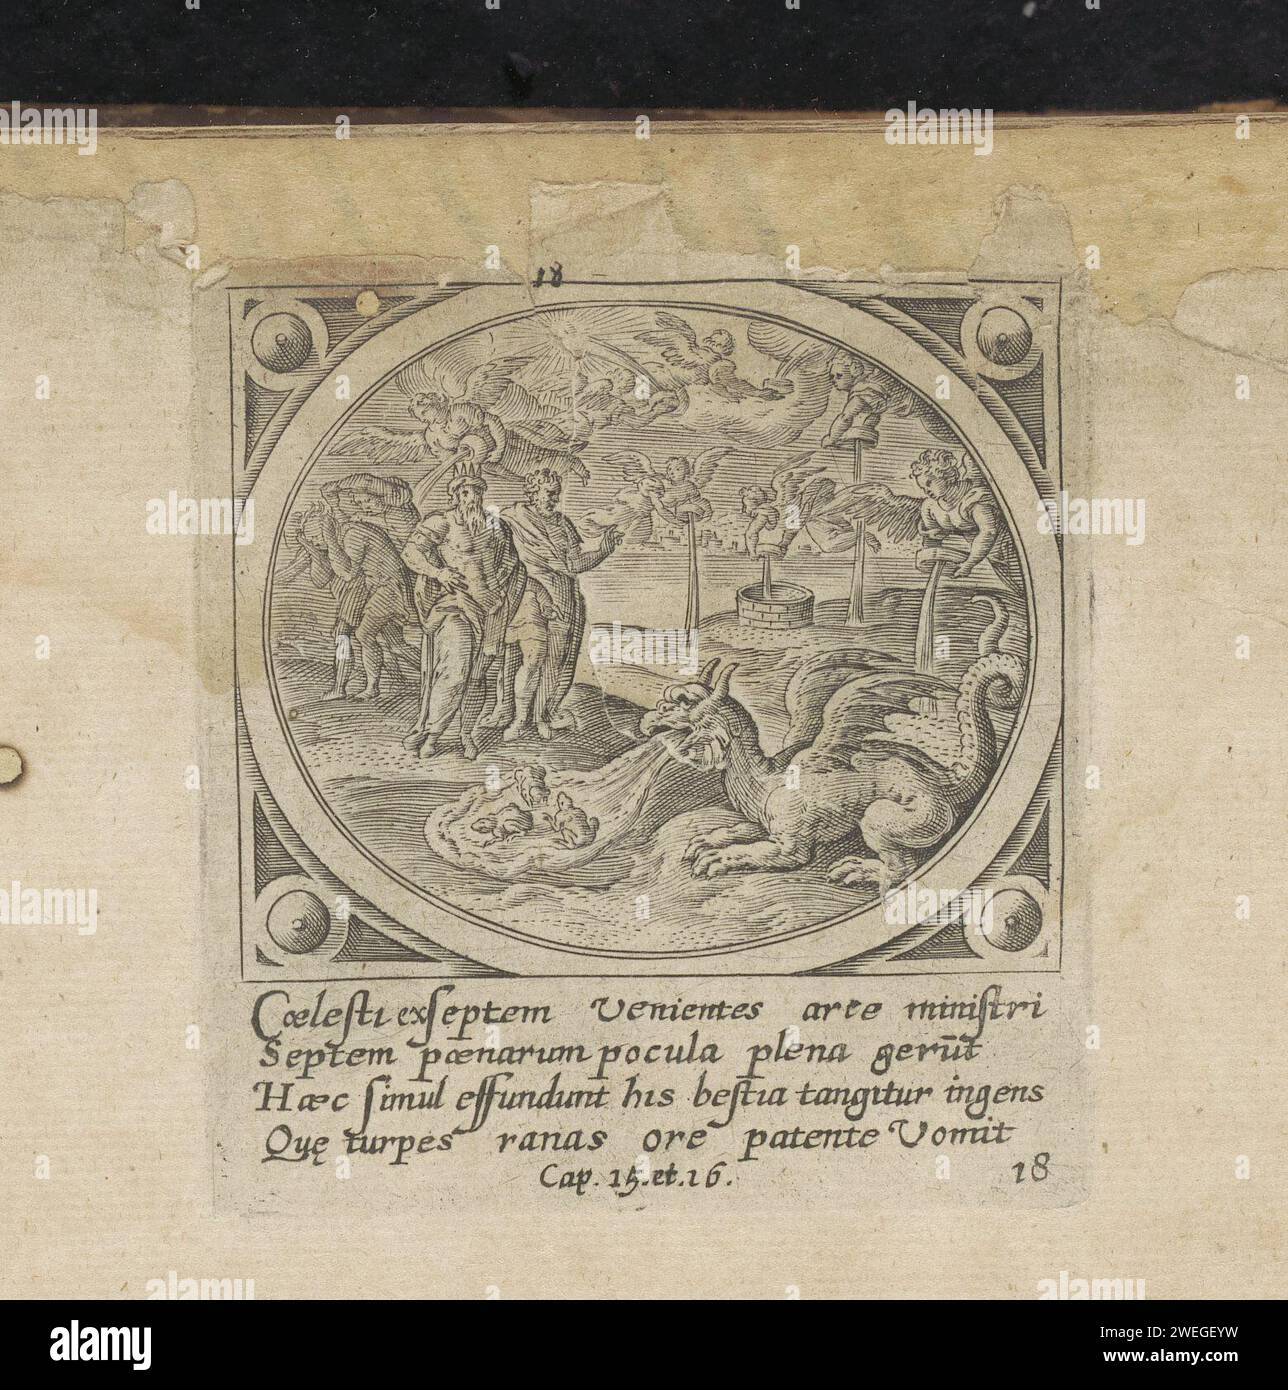 18
Cœlesti exseptem Venientes arce ministri
Septem pœnarum pocula plena gerūt
Hæc simul effundunt his bestia tangitur ingens
Quę turpes ranas ore patente Vomit
Cap. 15. et. 16.
18
alamy
Image ID: 2WEGEYW
www.alamy.com